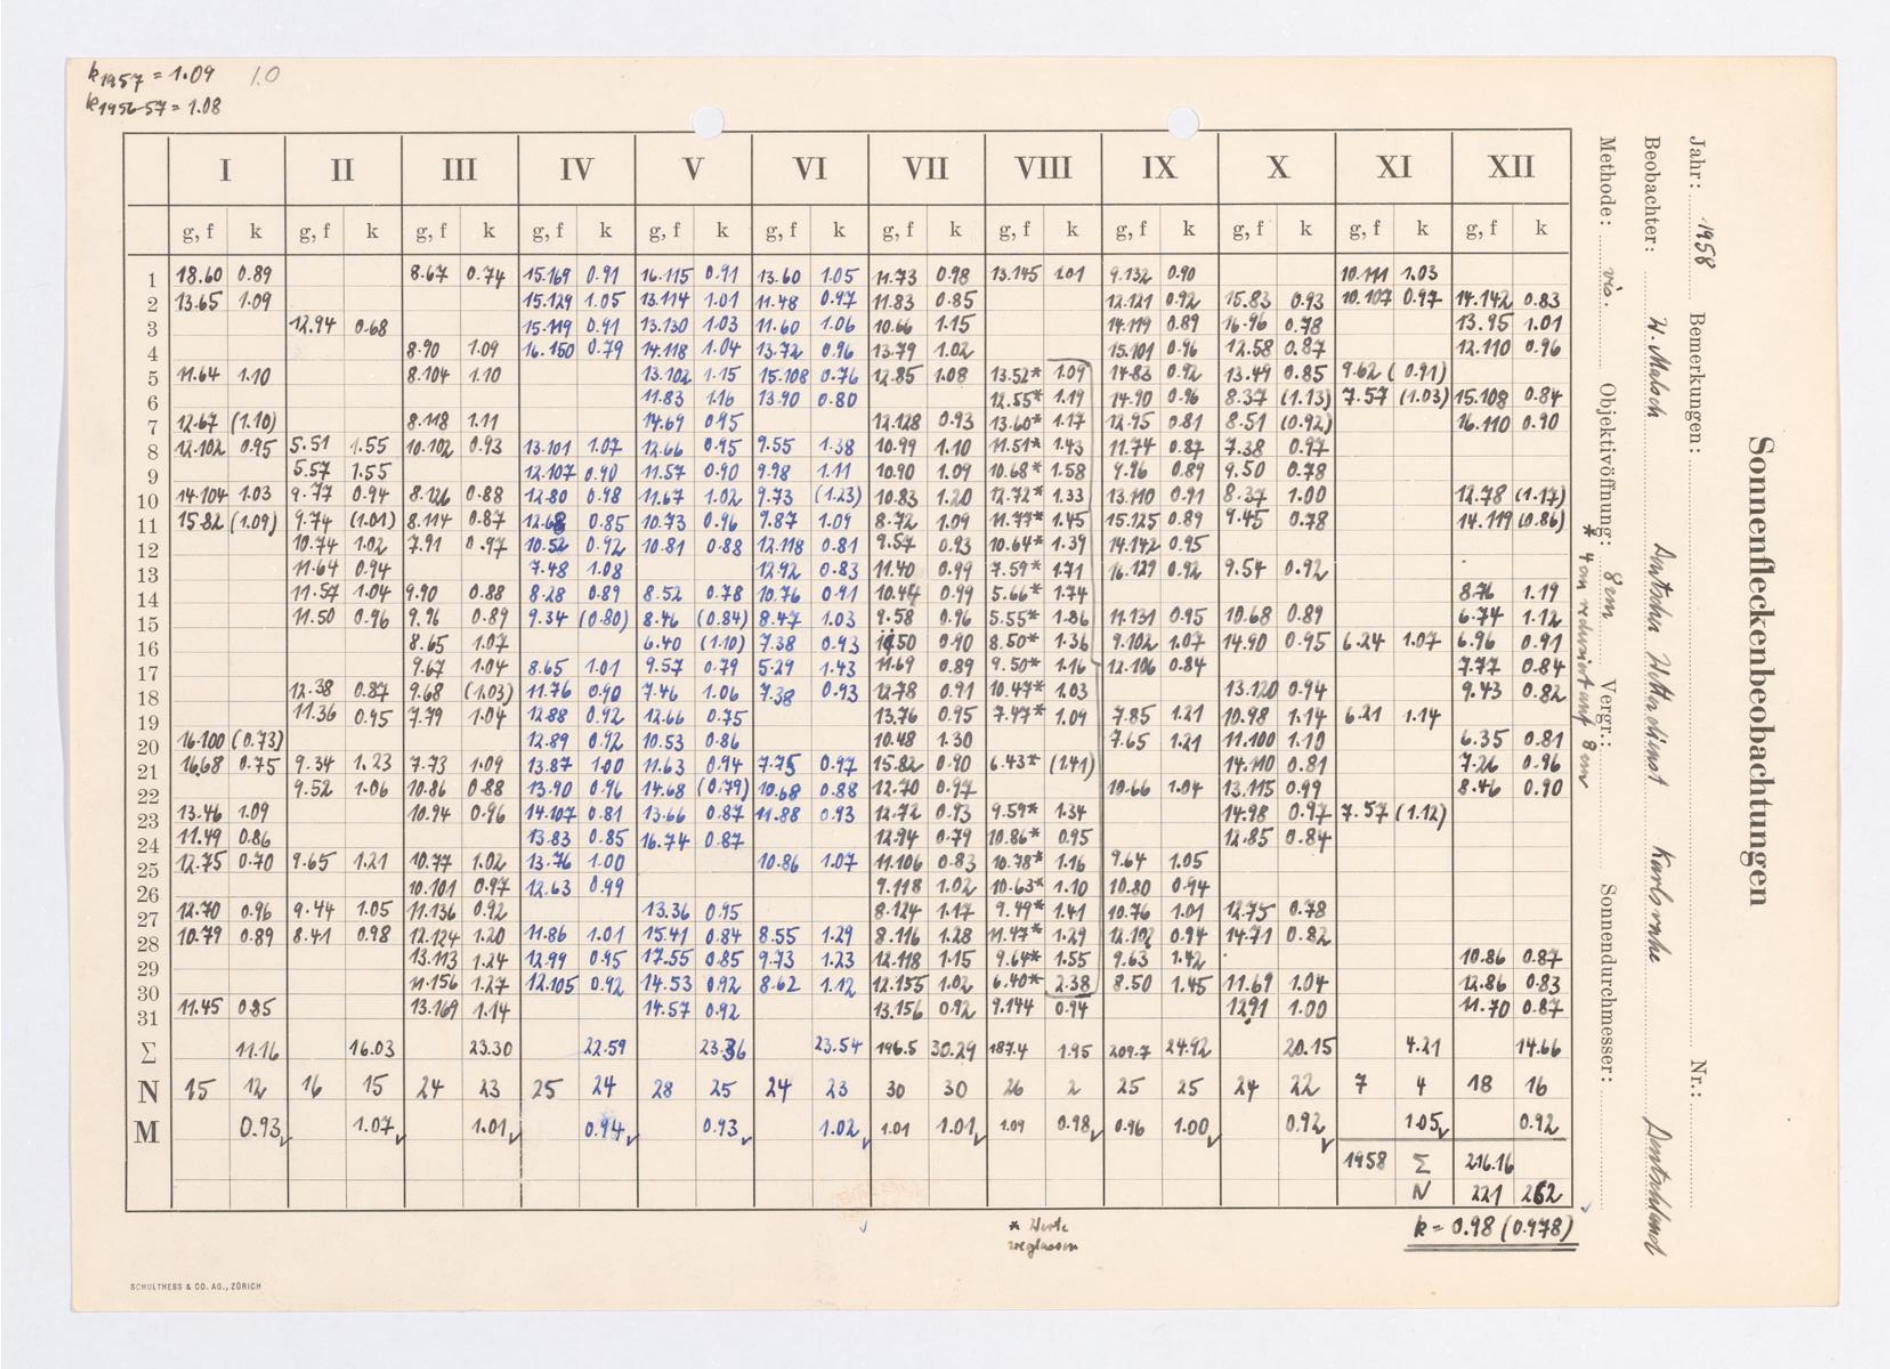 k1957 = 1.09 1.0
k1956-57 = 1.08
Sonnenfleckenbeobachtungen
Jahr: 1958 Bemerkungen: Nr.:
Beobachter: W. Malsch Deutscher Wetterdienst Karlsruhe Deutschland
Methode: vis. Objektivöffnung: 8 cm Vergr.: Sonnendurchmesser:
* 4 cm reduziert auf 8 cm
I II III IV V VI VII VIII IX X XI XII
g, f k g, f k g, f k g, f k g, f k g, f k g, f k g, f k g, f k g, f k g, f k g, f k
1 18.60 0.89 8.67 0.74 15.169 0.91 16.115 0.91 13.60 1.05 11.73 0.98 13.145 1.01 9.132 0.90 10.111 1.03
2 13.65 1.09 15.129 1.05 13.114 1.01 11.48 0.97 11.83 0.85 12.121 0.92 15.83 0.93 10.107 0.97 14.142 0.83
3 12.94 0.68 15.119 0.91 13.130 1.03 11.60 1.06 10.66 1.15 14.119 0.89 16.96 0.78 13.95 1.01
4 8.90 1.09 16.150 0.79 14.118 1.04 13.72 0.96 13.79 1.02 15.101 0.96 12.58 0.87 12.110 0.96
5 11.64 1.10 8.104 1.10 13.102 1.15 15.108 0.76 12.85 1.08 13.52* 1.09 14.83 0.92 13.49 0.85 9.62 (0.91)
6 11.83 1.16 13.90 0.80 12.55* 1.19 14.90 0.96 8.37 (1.13) 7.57 (1.03) 15.108 0.84
7 12.67 (1.10) 8.118 1.11 14.69 0.95 12.128 0.93 13.60* 1.17 12.95 0.81 8.51 (0.92) 16.110 0.90
8 12.102 0.95 5.51 1.55 10.102 0.93 13.101 1.07 12.66 0.95 9.55 1.38 10.99 1.10 11.51* 1.43 11.74 0.87 7.38 0.97
9 5.57 1.55 12.107 0.90 11.57 0.90 9.98 1.11 10.90 1.09 10.68* 1.58 9.96 0.89 9.50 0.78
10 14.104 1.03 9.77 0.94 8.126 0.88 12.80 0.98 11.67 1.02 9.73 (1.23) 10.83 1.20 12.72* 1.33 13.110 0.91 8.37 1.00 12.78 (1.17)
11 15.82 (1.09) 9.74 (1.01) 8.114 0.87 12.68 0.85 10.73 0.96 9.87 1.09 8.72 1.09 11.77* 1.45 15.125 0.89 9.45 0.78 14.119 (0.86)
12 10.74 1.02 7.91 0.97 10.52 0.92 10.81 0.88 12.118 0.81 9.57 0.93 10.64* 1.39 14.142 0.95
13 11.64 0.94 7.48 1.08 12.92 0.83 11.40 0.99 7.59* 1.71 16.129 0.92 9.54 0.92
14 11.57 1.04 9.90 0.88 8.28 0.89 8.52 0.78 10.76 0.91 10.44 0.99 5.66* 1.74 8.76 1.19
15 11.50 0.96 9.96 0.89 9.34 (0.80) 8.46 (0.84) 8.47 1.03 9.58 0.96 5.55* 1.86 11.131 0.95 10.68 0.89 6.74 1.12
16 8.65 1.07 6.40 (1.10) 7.38 0.93 10.50 0.90 8.50* 1.36 9.102 1.07 14.90 0.95 6.24 1.07 6.96 0.91
17 9.67 1.04 8.65 1.01 9.57 0.79 5.29 1.43 11.69 0.89 9.50* 1.16 12.106 0.84 7.77 0.84
18 12.38 0.87 9.68 (1.03) 11.76 0.90 7.46 1.06 7.38 0.93 12.78 0.91 10.47* 1.03 13.120 0.94 9.43 0.82
19 11.36 0.95 7.79 1.04 12.88 0.92 12.66 0.75 13.76 0.95 7.47* 1.09 7.85 1.21 10.98 1.14 6.21 1.14
20 16.100 (0.73) 12.89 0.92 10.53 0.86 10.48 1.30 7.65 1.21 11.100 1.10 6.35 0.81
21 16.68 0.75 9.34 1.23 7.73 1.09 13.87 1.00 11.63 0.94 7.75 0.97 15.82 0.90 6.43* (1.41) 14.110 0.81 7.26 0.96
22 9.52 1.06 10.86 0.88 13.90 0.96 14.68 (0.79) 10.68 0.88 12.70 0.97 10.66 1.04 13.115 0.99 8.46 0.90
23 13.46 1.09 10.94 0.96 14.107 0.81 13.66 0.87 11.88 0.93 12.72 0.93 9.59* 1.34 14.98 0.97 7.57 (1.12)
24 11.49 0.86 13.83 0.85 16.74 0.87 12.94 0.79 10.86* 0.95 12.85 0.84
25 12.75 0.70 9.65 1.21 10.77 1.02 13.76 1.00 10.86 1.07 11.106 0.83 10.78* 1.16 9.64 1.05
26 10.101 0.97 12.63 0.99 9.118 1.02 10.63* 1.10 10.80 0.94
27 12.70 0.96 9.44 1.05 11.136 0.92 13.36 0.95 8.124 1.17 9.49* 1.41 10.76 1.01 12.75 0.78
28 10.79 0.89 8.41 0.98 12.124 1.20 11.86 1.01 15.41 0.84 8.55 1.29 8.116 1.28 11.47* 1.29 12.102 0.94 14.71 0.82
29 13.113 1.24 12.99 0.95 17.55 0.85 9.73 1.23 12.118 1.15 9.64* 1.55 9.63 1.42 10.86 0.87
30 11.156 1.27 12.105 0.92 14.53 0.92 8.62 1.12 12.155 1.02 6.40* 2.38 8.50 1.45 11.69 1.04 12.86 0.83
31 11.45 0.85 13.169 1.14 14.57 0.92 13.156 0.92 9.144 0.94 12.91 1.00 11.70 0.87
Σ 11.16 16.03 23.30 22.59 23.36 23.54 196.5 30.29 187.4 1.95 209.7 24.92 20.15 4.21 14.66
N 15 12 16 15 24 23 25 24 28 25 24 23 30 30 26 2 25 25 24 22 7 4 18 16
M 0.93 1.07 1.01 0.94 0.93 1.02 1.01 1.01 1.09 0.98 0.96 1.00 0.92 1.05 0.92
1958 Σ 216.16
N 221 262
k = 0.98 (0.978)
* Werte
weglassen
SCHULTHESS & CO. AG., ZÜRICH